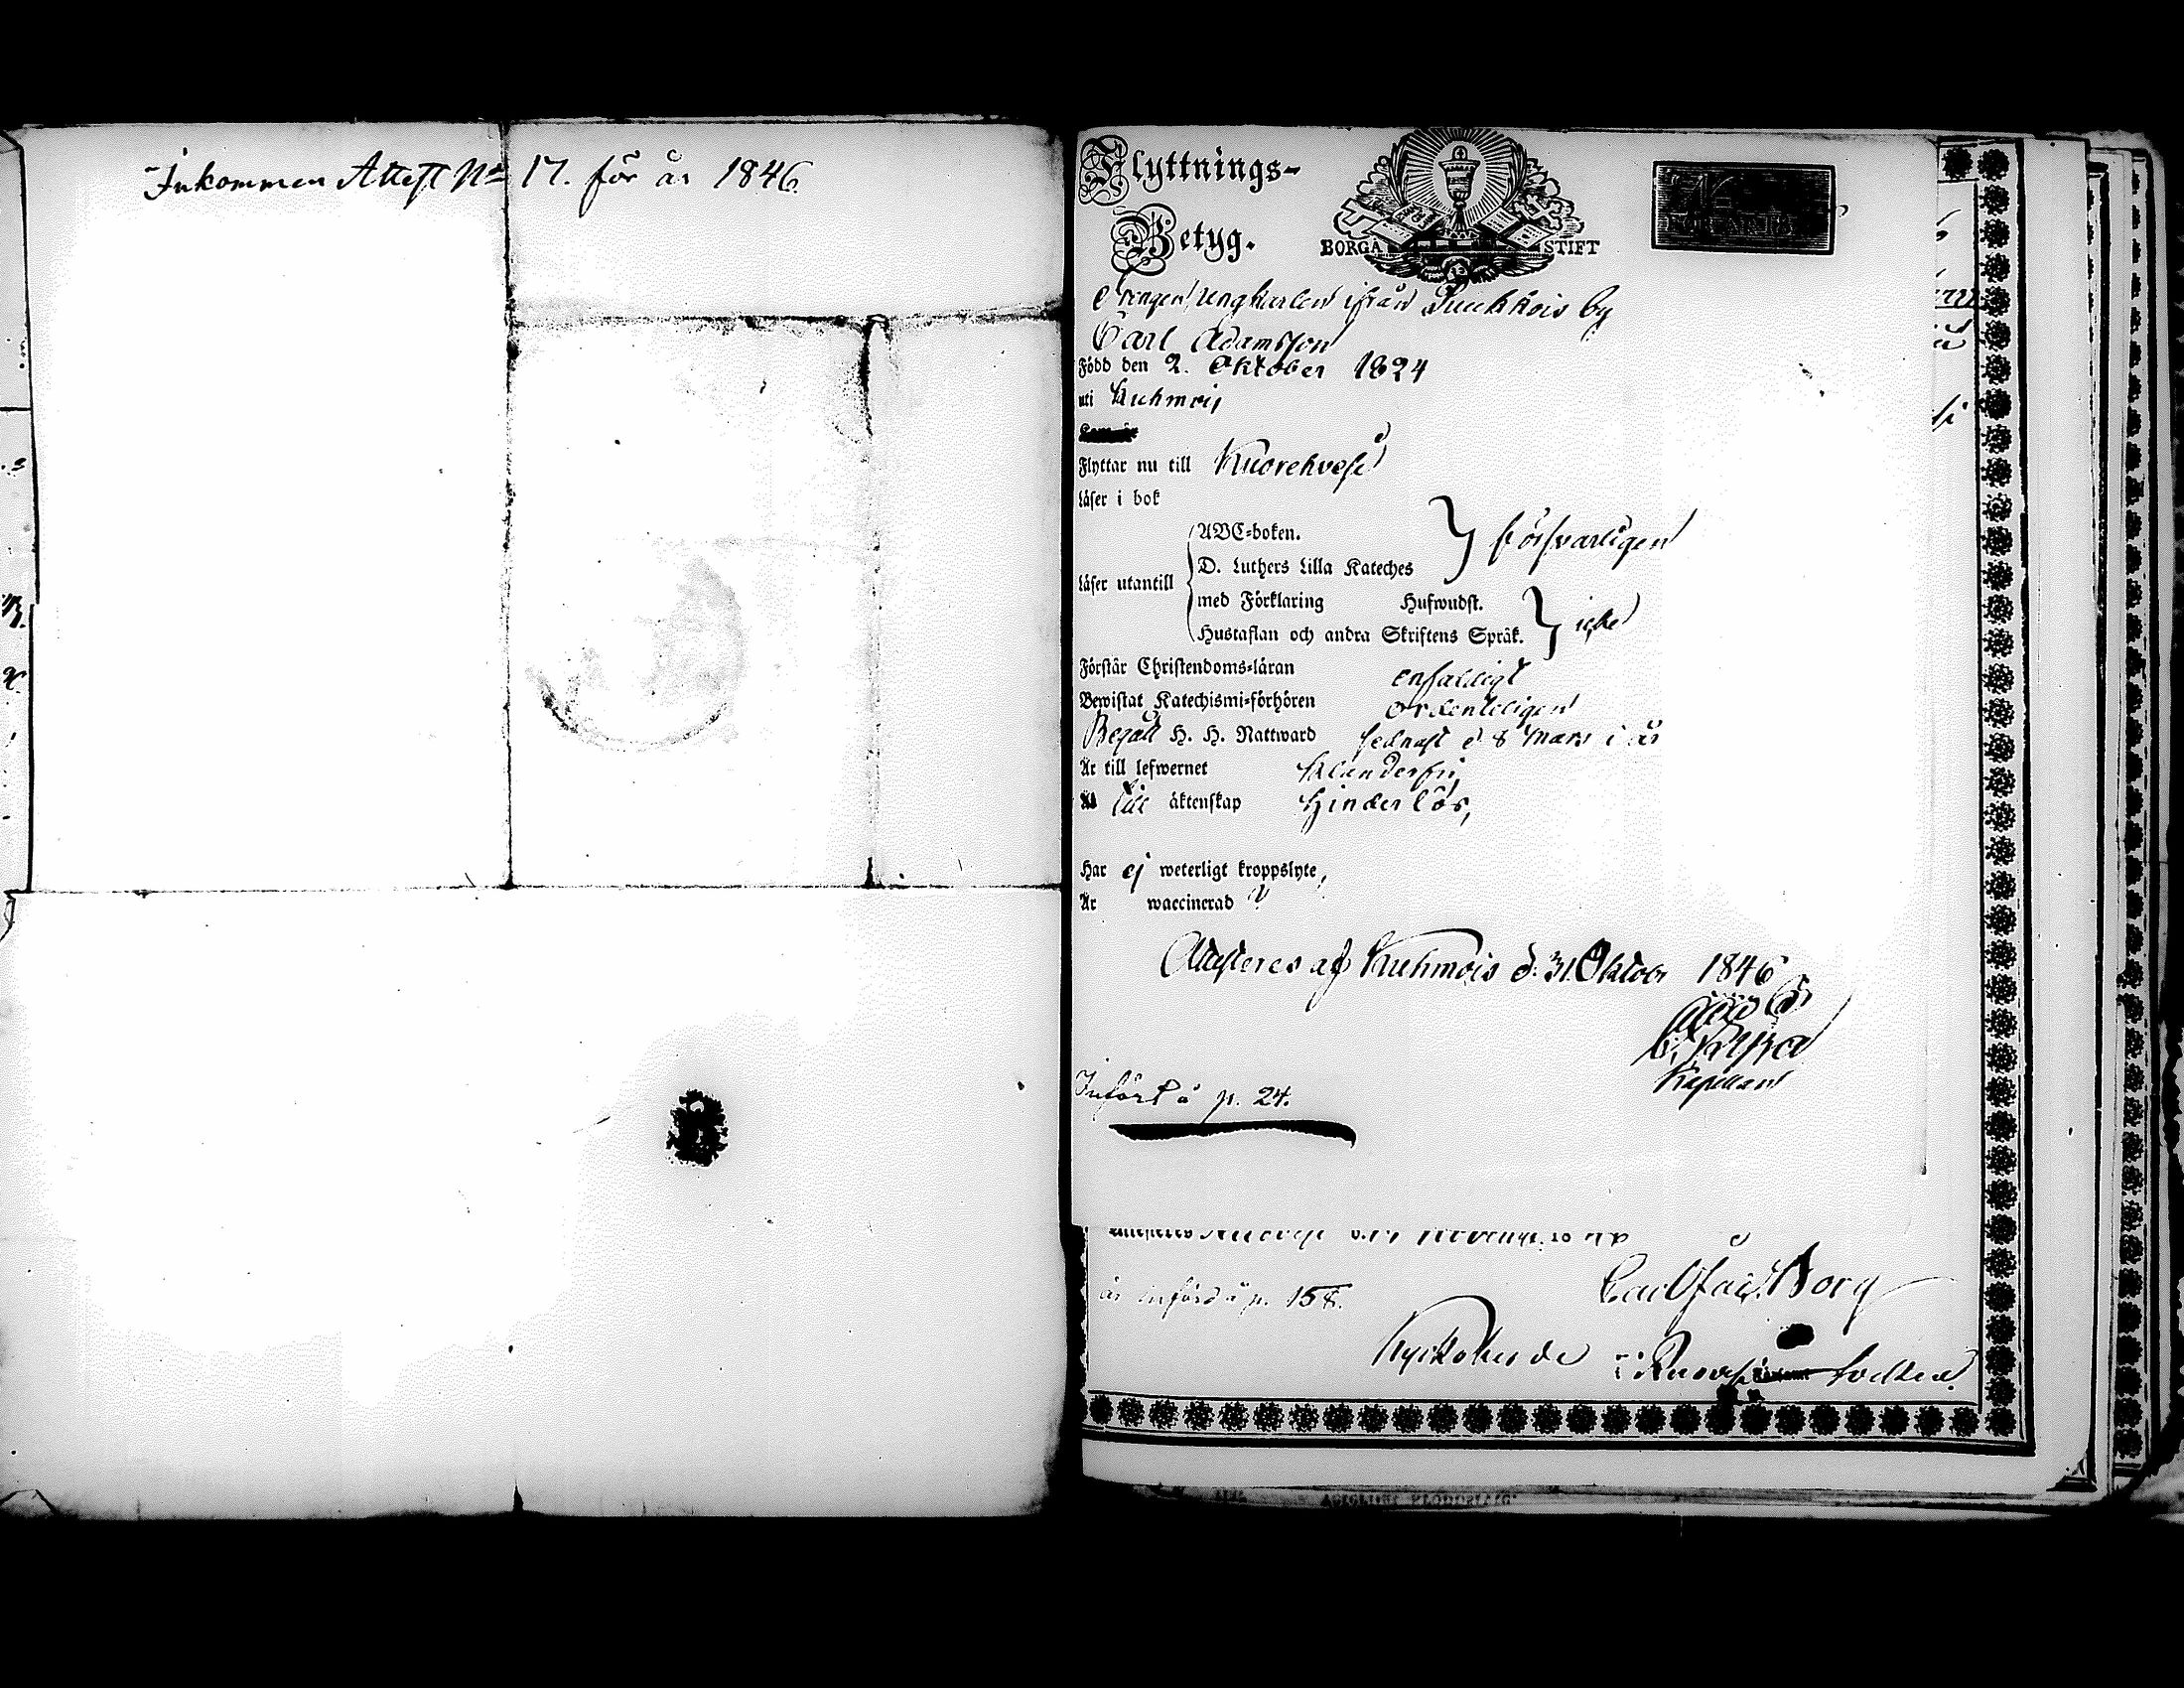 Inkommen Attest No 17. för år 1846.
Flyttnings-
Betyg.
BORGÅ STIFT
Drengen, Ungkarlen ifrån Puukkois by
Carl Adamsson
Född den 2. Oktober 1824
uti Kuhmois
Flyttar nu till Kuorehvesi
Läser i bok
Läser utantill
ABC-boken.
D. Luthers Lilla Kateches
försvarligen
med Förklaring Hufwudst.
Hustaflan och andra Skriftens Språk.
icke
Förstår Christendoms-läran enfaldigt
Bewistat Katechismi-förhören ordenteligen
Begått H. H. Nattward sednast d. 8 Mars i år
Är till lefwernet klanderfri,
till äktenskap hinderlös,
Har ej weterligt kroppslyte,
Är waccinerad
Attesteres af Kuhmois d. 31. Oktobr 1846
Kapellan
Infört å p. 24.
är införd å p. 158.
Carl Borg
Kyrkoherde i